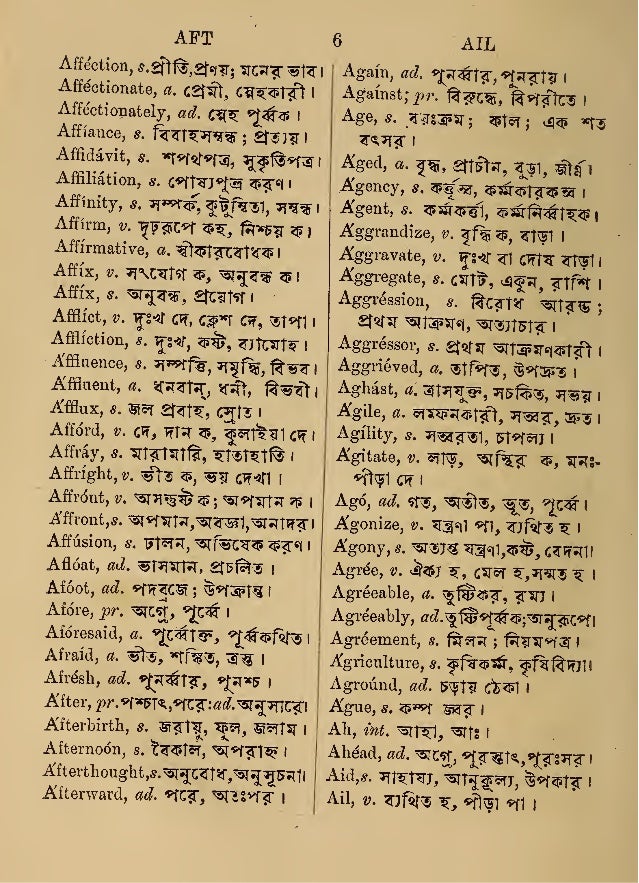 AFT 6 AIL
Afféction, s. প্রীতি, প্রণয়; মনের ভাব।
Afféctionate, a. প্রেমী, স্নেহকারী।
Afféctionately, ad. স্নেহ পূর্ব্বক।
Affíance, s. বিবাহসম্বন্ধ; প্রত্যয়।
Affidávit, s. শপথপত্র, সুকৃতিপত্র।
Affiliátion, s. পোষ্যপুত্র করণ।
Affínity, s. সম্পর্ক, কুটুম্বিতা, সম্বন্ধ।
Affírm, v. দৃঢ়রূপে কহ, নিশ্চয় ক।
Affírmative, a. স্বীকারবোধক।
Affíx, v. সংযোগ ক, অনুবন্ধ ক।
Affíx, s. অনুবন্ধ, প্রয়োগ।
Afflíct, v. দুঃখ দে, ক্লেশ দে, তাপা।
Afflíction, s. দুঃখ, কষ্ট, ব্যামোহ।
A´ffluence, s. সম্পত্তি, সমৃদ্ধি, বিভব।
A´ffluent, a. ধনবান্, ধনী, বিভবী।
A´fflux, s. জল প্রবাহ, স্রোত।
Affórd, v. দে, দান ক, কুলাইয়া দে।
Affráy, s. মারামারি, হাতাহাতি।
Affríght, v. ভীত ক, ভয় দেখা।
Affrónt, v. অসন্তুষ্ট ক; অপমান ক।
A´ffront, s. অপমান, অবজ্ঞা, অনাদর।
Affúsion, s. ঢালন, অভিষেক করণ।
Aflóat, ad. ভাসমান, প্রচলিত।
Afóot, ad. পদব্রজে; উপক্রান্ত।
Afóre, pr. অগ্রে, পূর্ব্বে।
Afóresaid, a. পূর্ব্বোক্ত, পূর্ব্বকথিত।
Afraíd, a. ভীত, শঙ্কিত, ত্রস্ত।
Afrésh, ad. পুনর্ব্বার, পুনশ্চ।
A´fter, pr. পশ্চাৎ, পরে: ad. অনুসারে।
A´fterbirth, s. জরায়ু, ফুল, জলাম।
Afternoón, s. বৈকাল, অপরাহ্ন।
A´fterthought, s. অনুবোধ, অনুসূচনা।
A´fterward, ad. পরে, অতঃপর।
Agaín, ad. পুনর্ব্বার, পুনরায়।
Agaínst; pr. বিরুদ্ধে, বিপরীতে।
Age, s. বয়ঃক্রম; কাল; এক শত
বৎসর।
A´ged, a. বৃদ্ধ, প্রাচীন, বুড়া, জীর্ণ।
A´gency, s. কর্ত্তৃত্ব, কর্ম্মকারকত্ব।
A´gent, s. কর্ম্মকর্ত্তা, কর্ম্মনির্ব্বাহক।
A´ggrandize, v. বৃদ্ধি ক, বাড়া।
A´ggravate, v. দুঃখ বা দোষ বাড়া।
A´ggregate, s. মোট, একুন, রাশি।
Aggréssion, s. বিরোধ আরম্ভ;
প্রথম আক্রমণ, অত্যাচার।
Aggréssor, s. প্রথম আক্রমণকারী।
Aggriéved, a. তাপিত, উপদ্রুত।
Aghást, a. ত্রাসযুক্ত, সচকিত, সভয়।
A´gile, a. লম্ফনকারী, সত্বর, দ্রুত।
Agílity, s. সত্বরতা, চাপল্য।
A´gitate, v. লাড়, অস্থির ক, মনঃ-
পীড়া দে।
Agó, ad. গত, অতীত, ভূত, পূর্ব্বে।
A´gonize, v. যন্ত্রণা পা, ব্যথিত হ।
A´gony, s. অত্যন্ত যন্ত্রণা, কষ্ট, বেদনা।
Agrée, v. ঐক্য হ, মেল হ, সম্মত হ।
Agréeable, a. তুষ্টিকর, রম্য।
Agréeably, ad. তুষ্টিপূর্ব্বক; অনুরূপে।
Agréement, s. মিলন; নিয়মপত্র।
A´griculture, s. কৃষিকর্ম্ম, কৃষিবিদ্যা।
Agroúnd, ad. চড়ায় ঠেকা।
A´gue, s. কম্প জ্বর।
Ah, int. আহা, আঃ।
Ahéad, ad. অগ্রে, পুরস্তাৎ, পুরঃসর।
Aid, s. সাহায্য, আনুকূল্য, উপকার।
Ail, v. ব্যথিত হ, পীড়া পা।